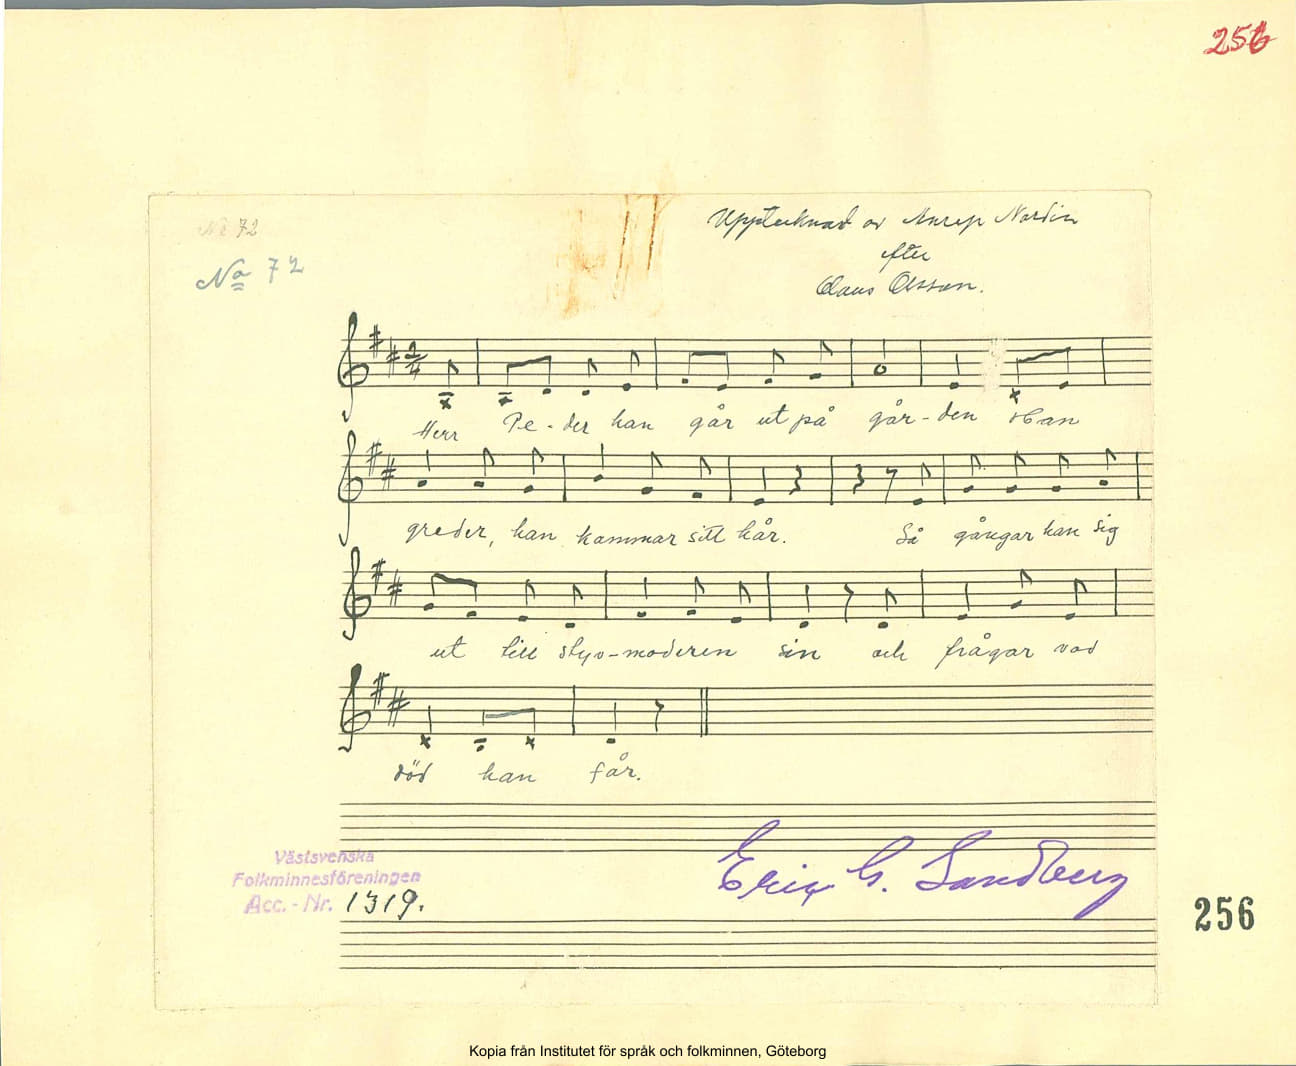 256
No 72
No 72
Upptecknad av Anrep Nordin
efter
Claus Olsson.
2/4
Herr Pe - der han går ut på går - den Han
greder, han kammar sitt hår. Så gångar han sig
ut till styv - moderen sin och frågar vad
död han får.
Västsvenska
Folkminnesföreningen
Acc. - Nr. 1319.
Eric G. Sandberg
256
Kopia från Institutet för språk och folkminnen, Göteborg